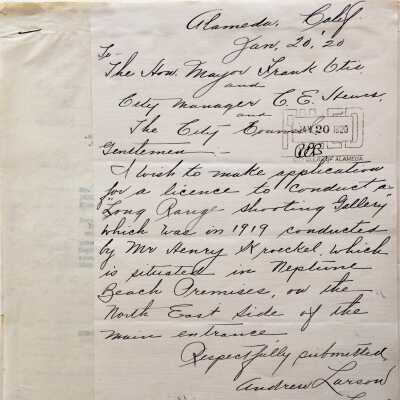 Alameda, Calif.
Jan, 20, '20
To
The Hon. Mayor Frank Otis
and
City Manager C. E. Hewes,
and
The City Council
JAN 20 1920
OF ALAMEDA
Gentlemen:-
I wish to make application
for a licence to conduct a
"Long Range Shooting Gallery"
which was in 1919 conducted
by Mr Henry Kroeckel, which
is situated in Neptune
Beach Premises, on the
North East side of the
main entrance
Respectfully submitted,
Andrew Larson